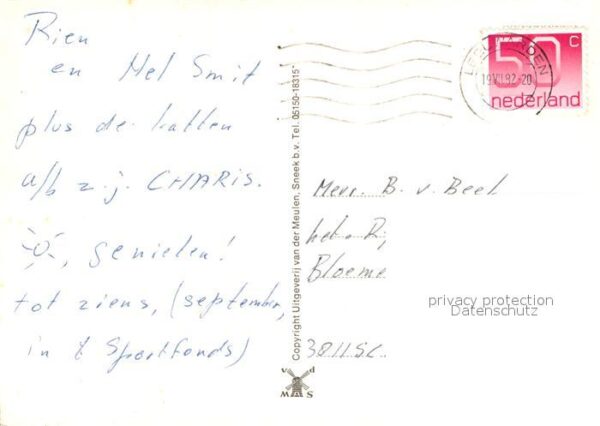 Rien
en Mel Smit
plus de katten
a/b z.j. CHARIS.
, genieten!
tot ziens, (september,
in 't Sportfonds)
Copyright Uitgeverij van der Meulen, Sneek b.v. Tel. 05150-18315*
v d
M S
50 c
nederland
19 VII.82-20
Mevr. B. v. Beek
Bloeme
3811SC.
privacy protection
Datenschutz